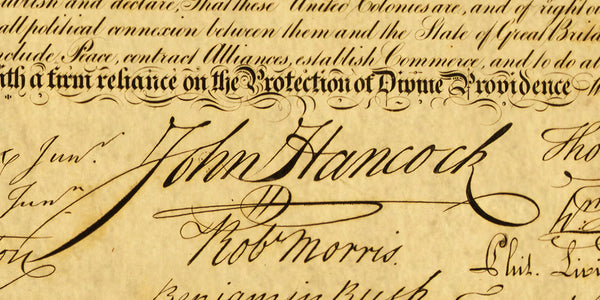 ublish and declare, That these United Colonies are, and of right ou
all political connexion between them and the State of Great Brita
nclude Peace, contract Alliances, establish Commerce, and to do al
ith a firm reliance on the Protection of Divine Providence
John Hancock
Junr.
Junr.
Tho
Wm
ton
Robt Morris.
Phil. Livi
Benjamin Rush